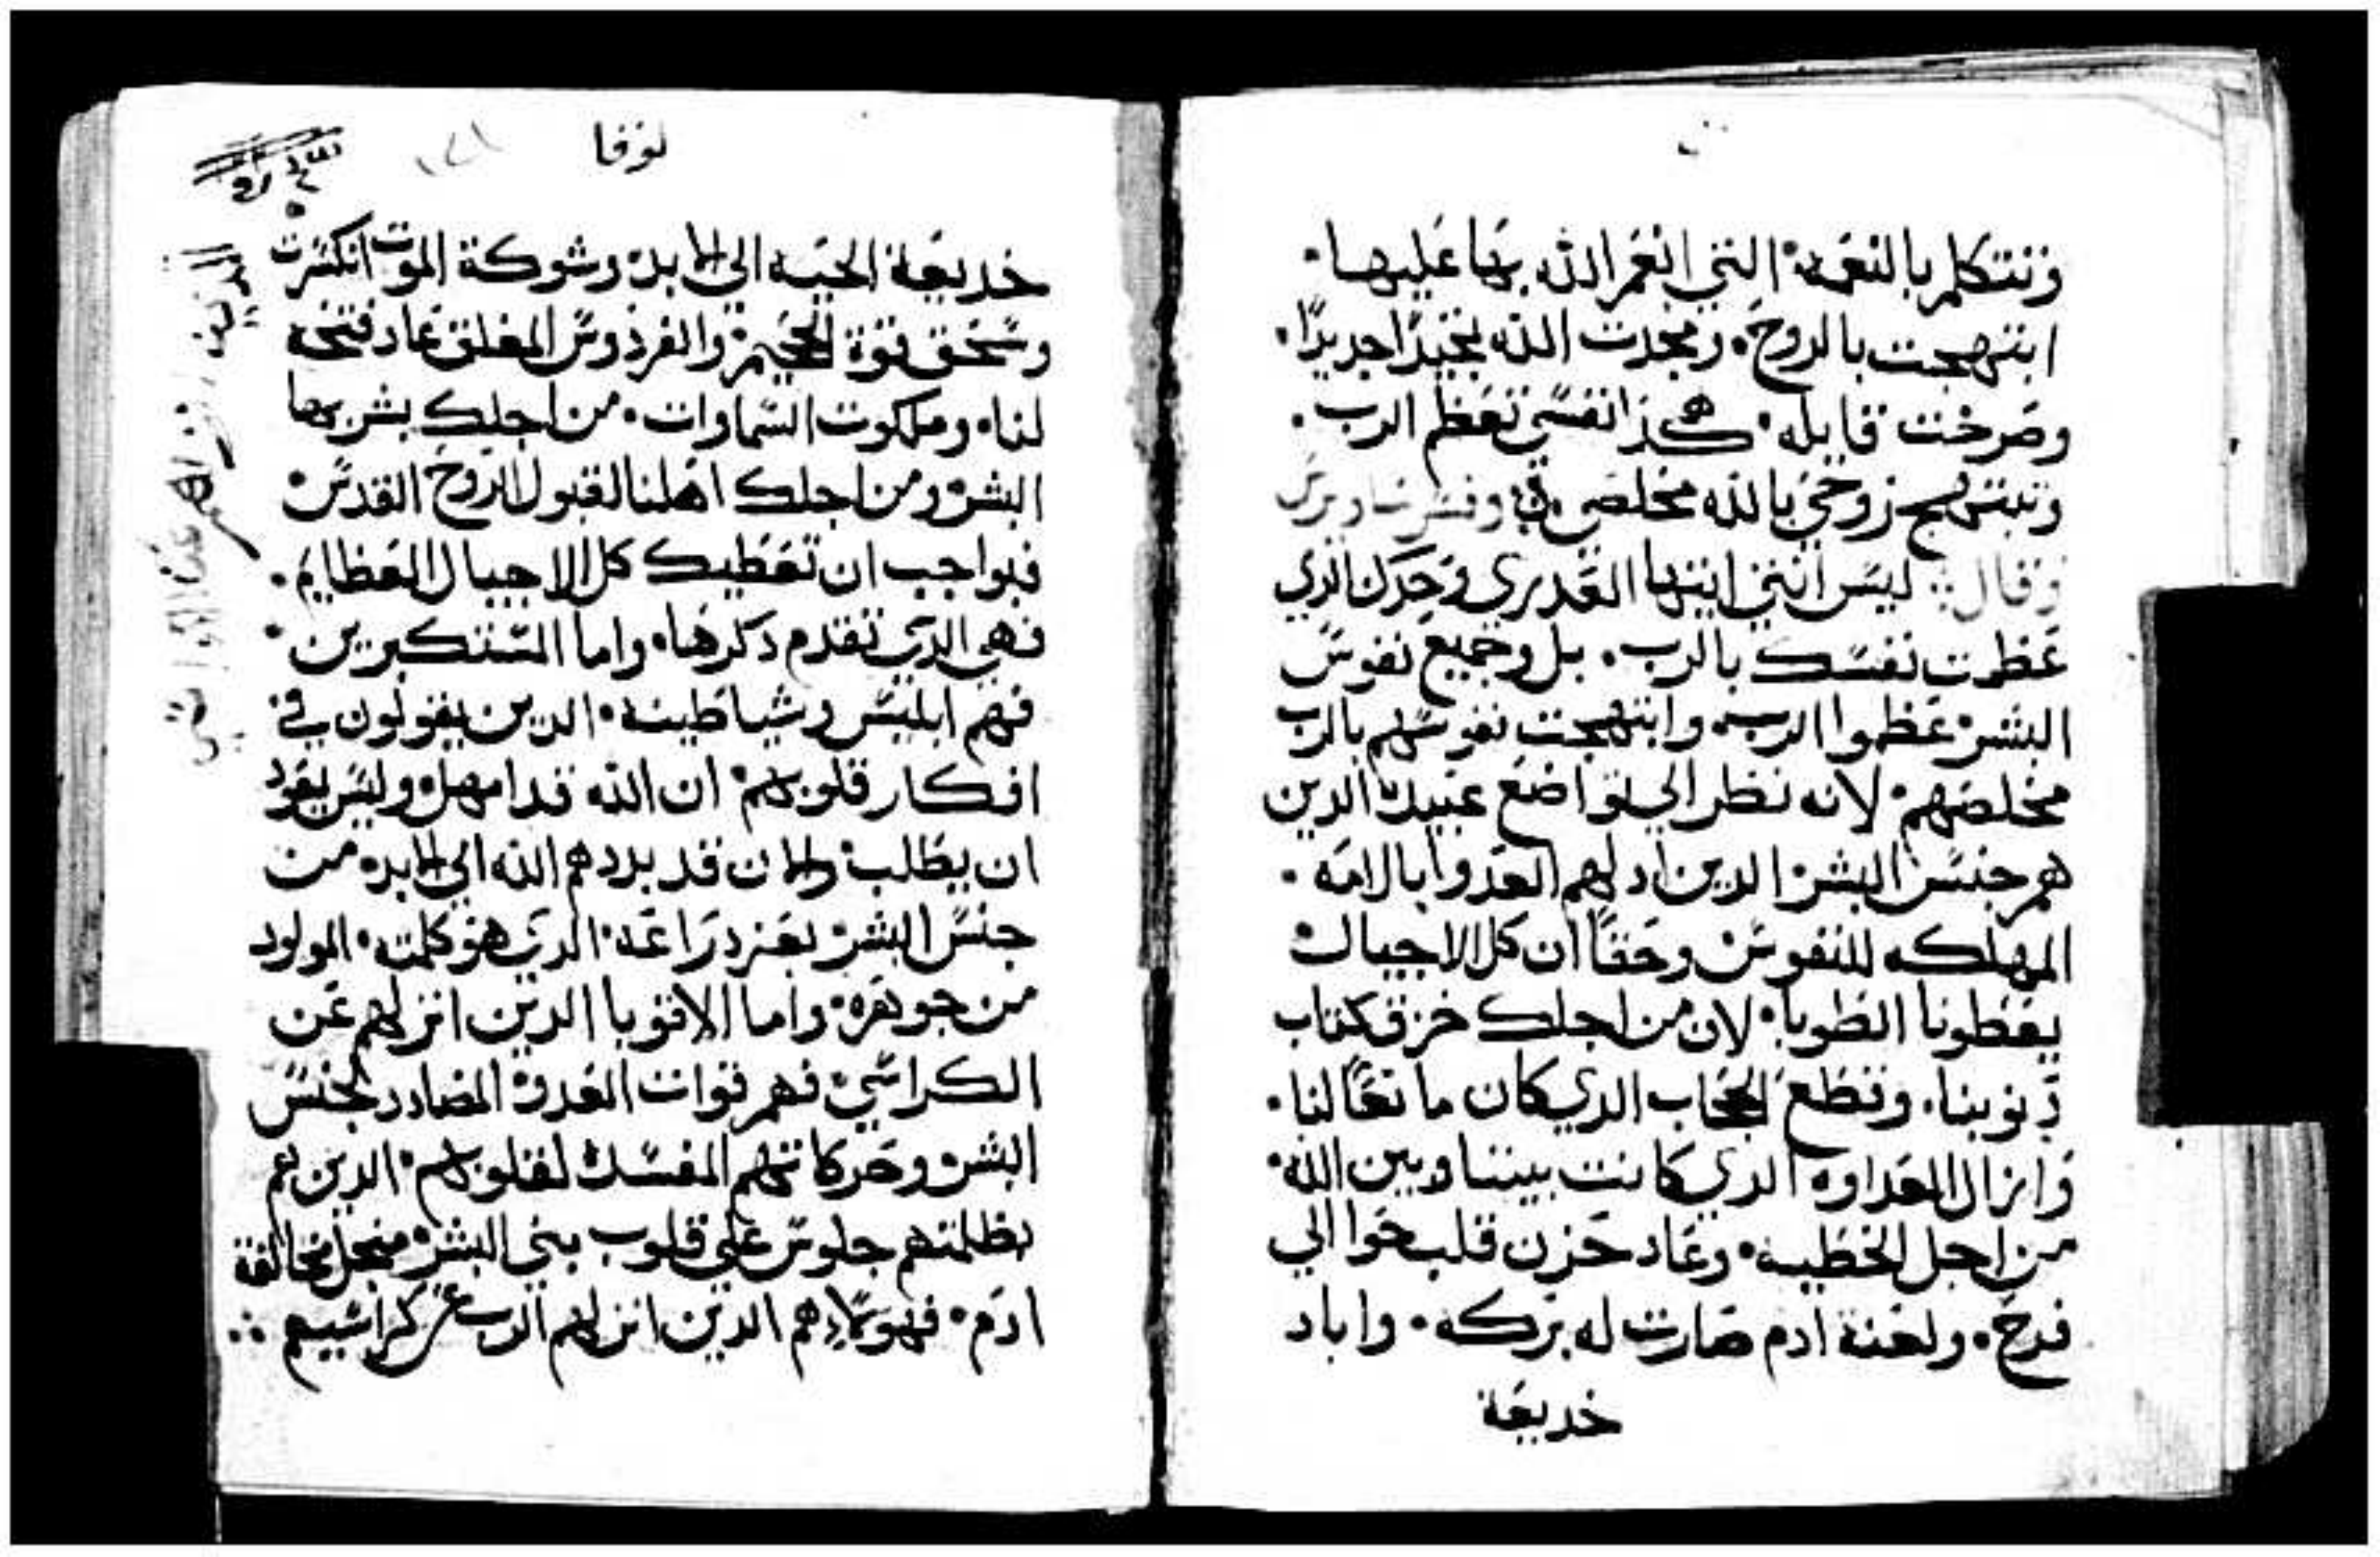 وتتكلم بالنعمه التي انعم الله بها عليها.
ابتهجت بالروح. ومجدت الله تمجيدًا جديدًا.
وصرخت قايله. هكذا نفسي تعظم الرب.
وتبتهج روحي بالله مخلصي
وقال: ليس انتي ايتها العدري وحدك الدي
عظمت نفسك بالرب. بل وجميع نفوس
البشر عظموا الرب. وابتهجت نفوسهم بالرب
مخلصهم. لانه نظر الي تواضع عبيده الدين
هم جنس البشر الدين ادلهم العدوا بالامه.
المهلكه للنفوس وحقاً ان كل الاجيال
يعطونا الطوبا. لان من اجلك خزق كتاب
دنوبنا. وقطع الحجاب الدي كان مانعًا لنا.
وازال العداوه الدي كانت بيننا وبين الله.
من اجل الخطيه. وعاد حزن قلب حوا الي
فرح. ولعنة ادم صارت له بركه. واباد
خديعة
لوقا
١٢١
خديعة الحيه الي الابد. وشوكة الموت انكسرت
وسحق قوة الجحيم. والفردوس المغلق عاد فتحه
لنا. وملكوت السماوات. من اجلك بشر بها
البشر ومن اجلك اهلنا لقبول الروح القدس
فبواجب ان تعطيك كل الاجيال العظايم.
فهي الدي تقدم دكرها. واما المستكبرين.
فهم ابليس وشياطينه. الدين يقولون في
افكار قلوبهم. ان الله قد امهل وليس يعود
ان يطلب. والان قد بددهم الله الي الابد. من
جنس البشر بعز دراعه. الدي هو كلمته. المولود
من جوهره. واما الاقويا الدين انزلهم عن
الكراسي. فهم قوات العدو المضادد لجنس
البشر وحركاتهم المفسده لقلوبهم. الدين هم
بظلمتهم جلوس علي قلوب بني البشر منجل مخالفة
ادم. فهولاء هم الدين انزلهم الرب عن كراسيهم ؞